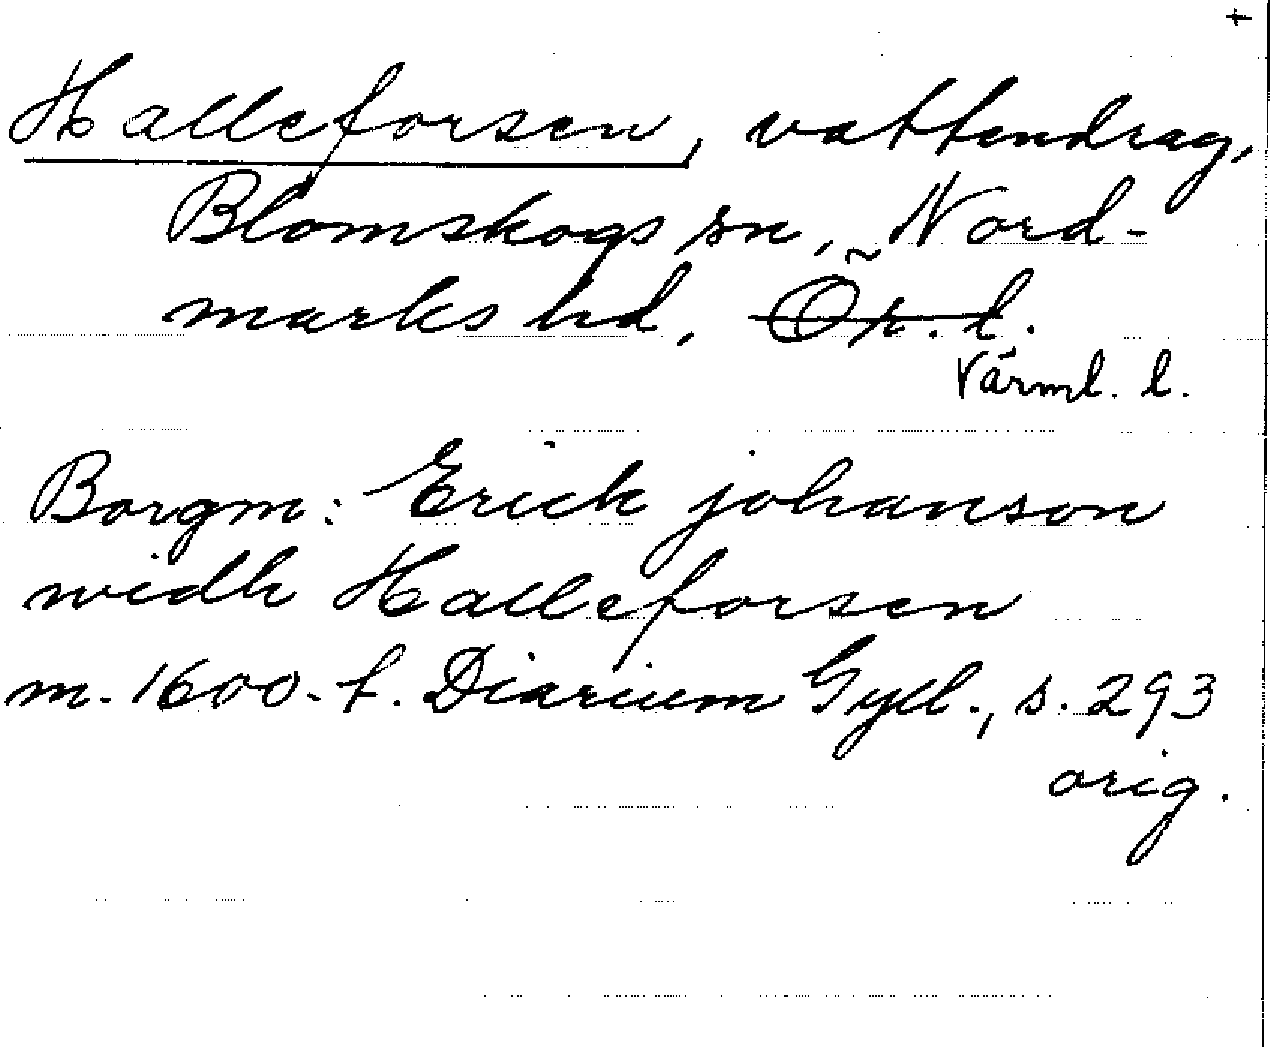 +
Halleforsen, vattendrag,
Blomskogs sn, Nord-
marks hd, Ör. l.
Värml. l.
Borgm: Erick johanson
widh Halleforsen
m. 1600-t. Diarium Gyll., s. 293
orig.